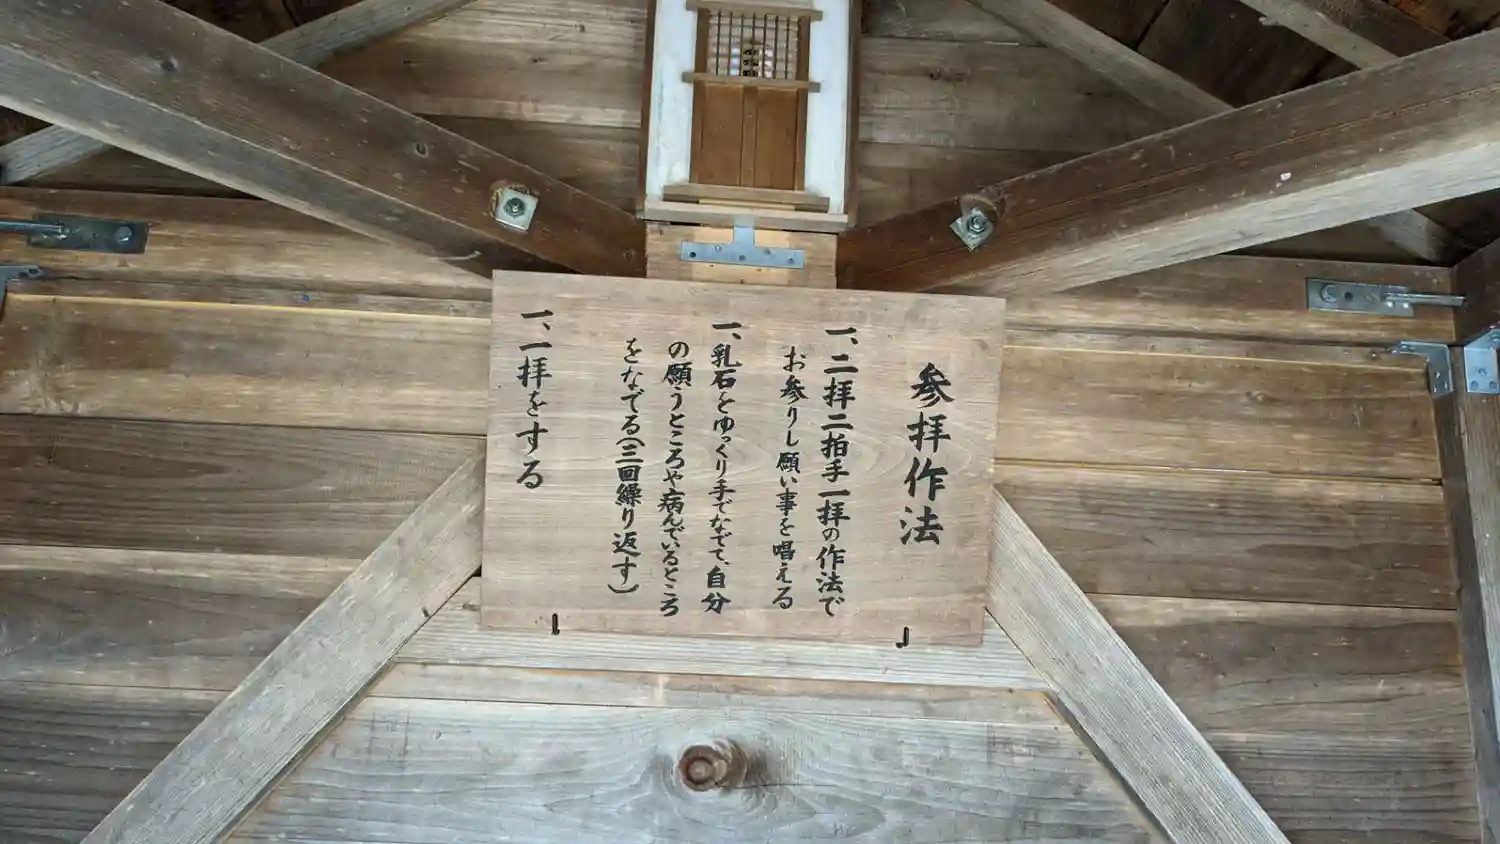 参拝作法
一、二拝二拍手一拝の作法で
お参りし願い事を唱える
一、乳石をゆっくり手でなでて、自分
の願うところや病んでいるところ
をなでる(三回繰り返す)
一、一拝をする